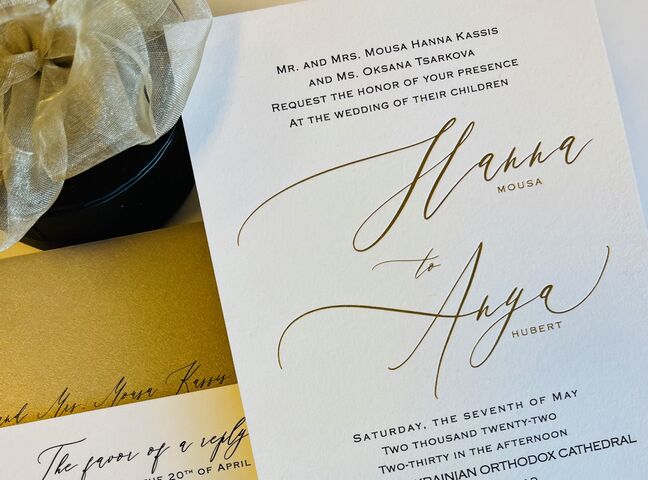 Mr. and Mrs. Mousa Hanna Kassis
and Ms. Oksana Tsarkova
Request the honor of your presence
At the wedding of their children
Hanna
Mousa
to
Anya
Hubert
Saturday, the seventh of May
Two thousand twenty-two
Two-thirty in the afternoon
Orthodox Cathedral
and Mrs. Mousa Kassis
The favor of a reply
the 20th of April